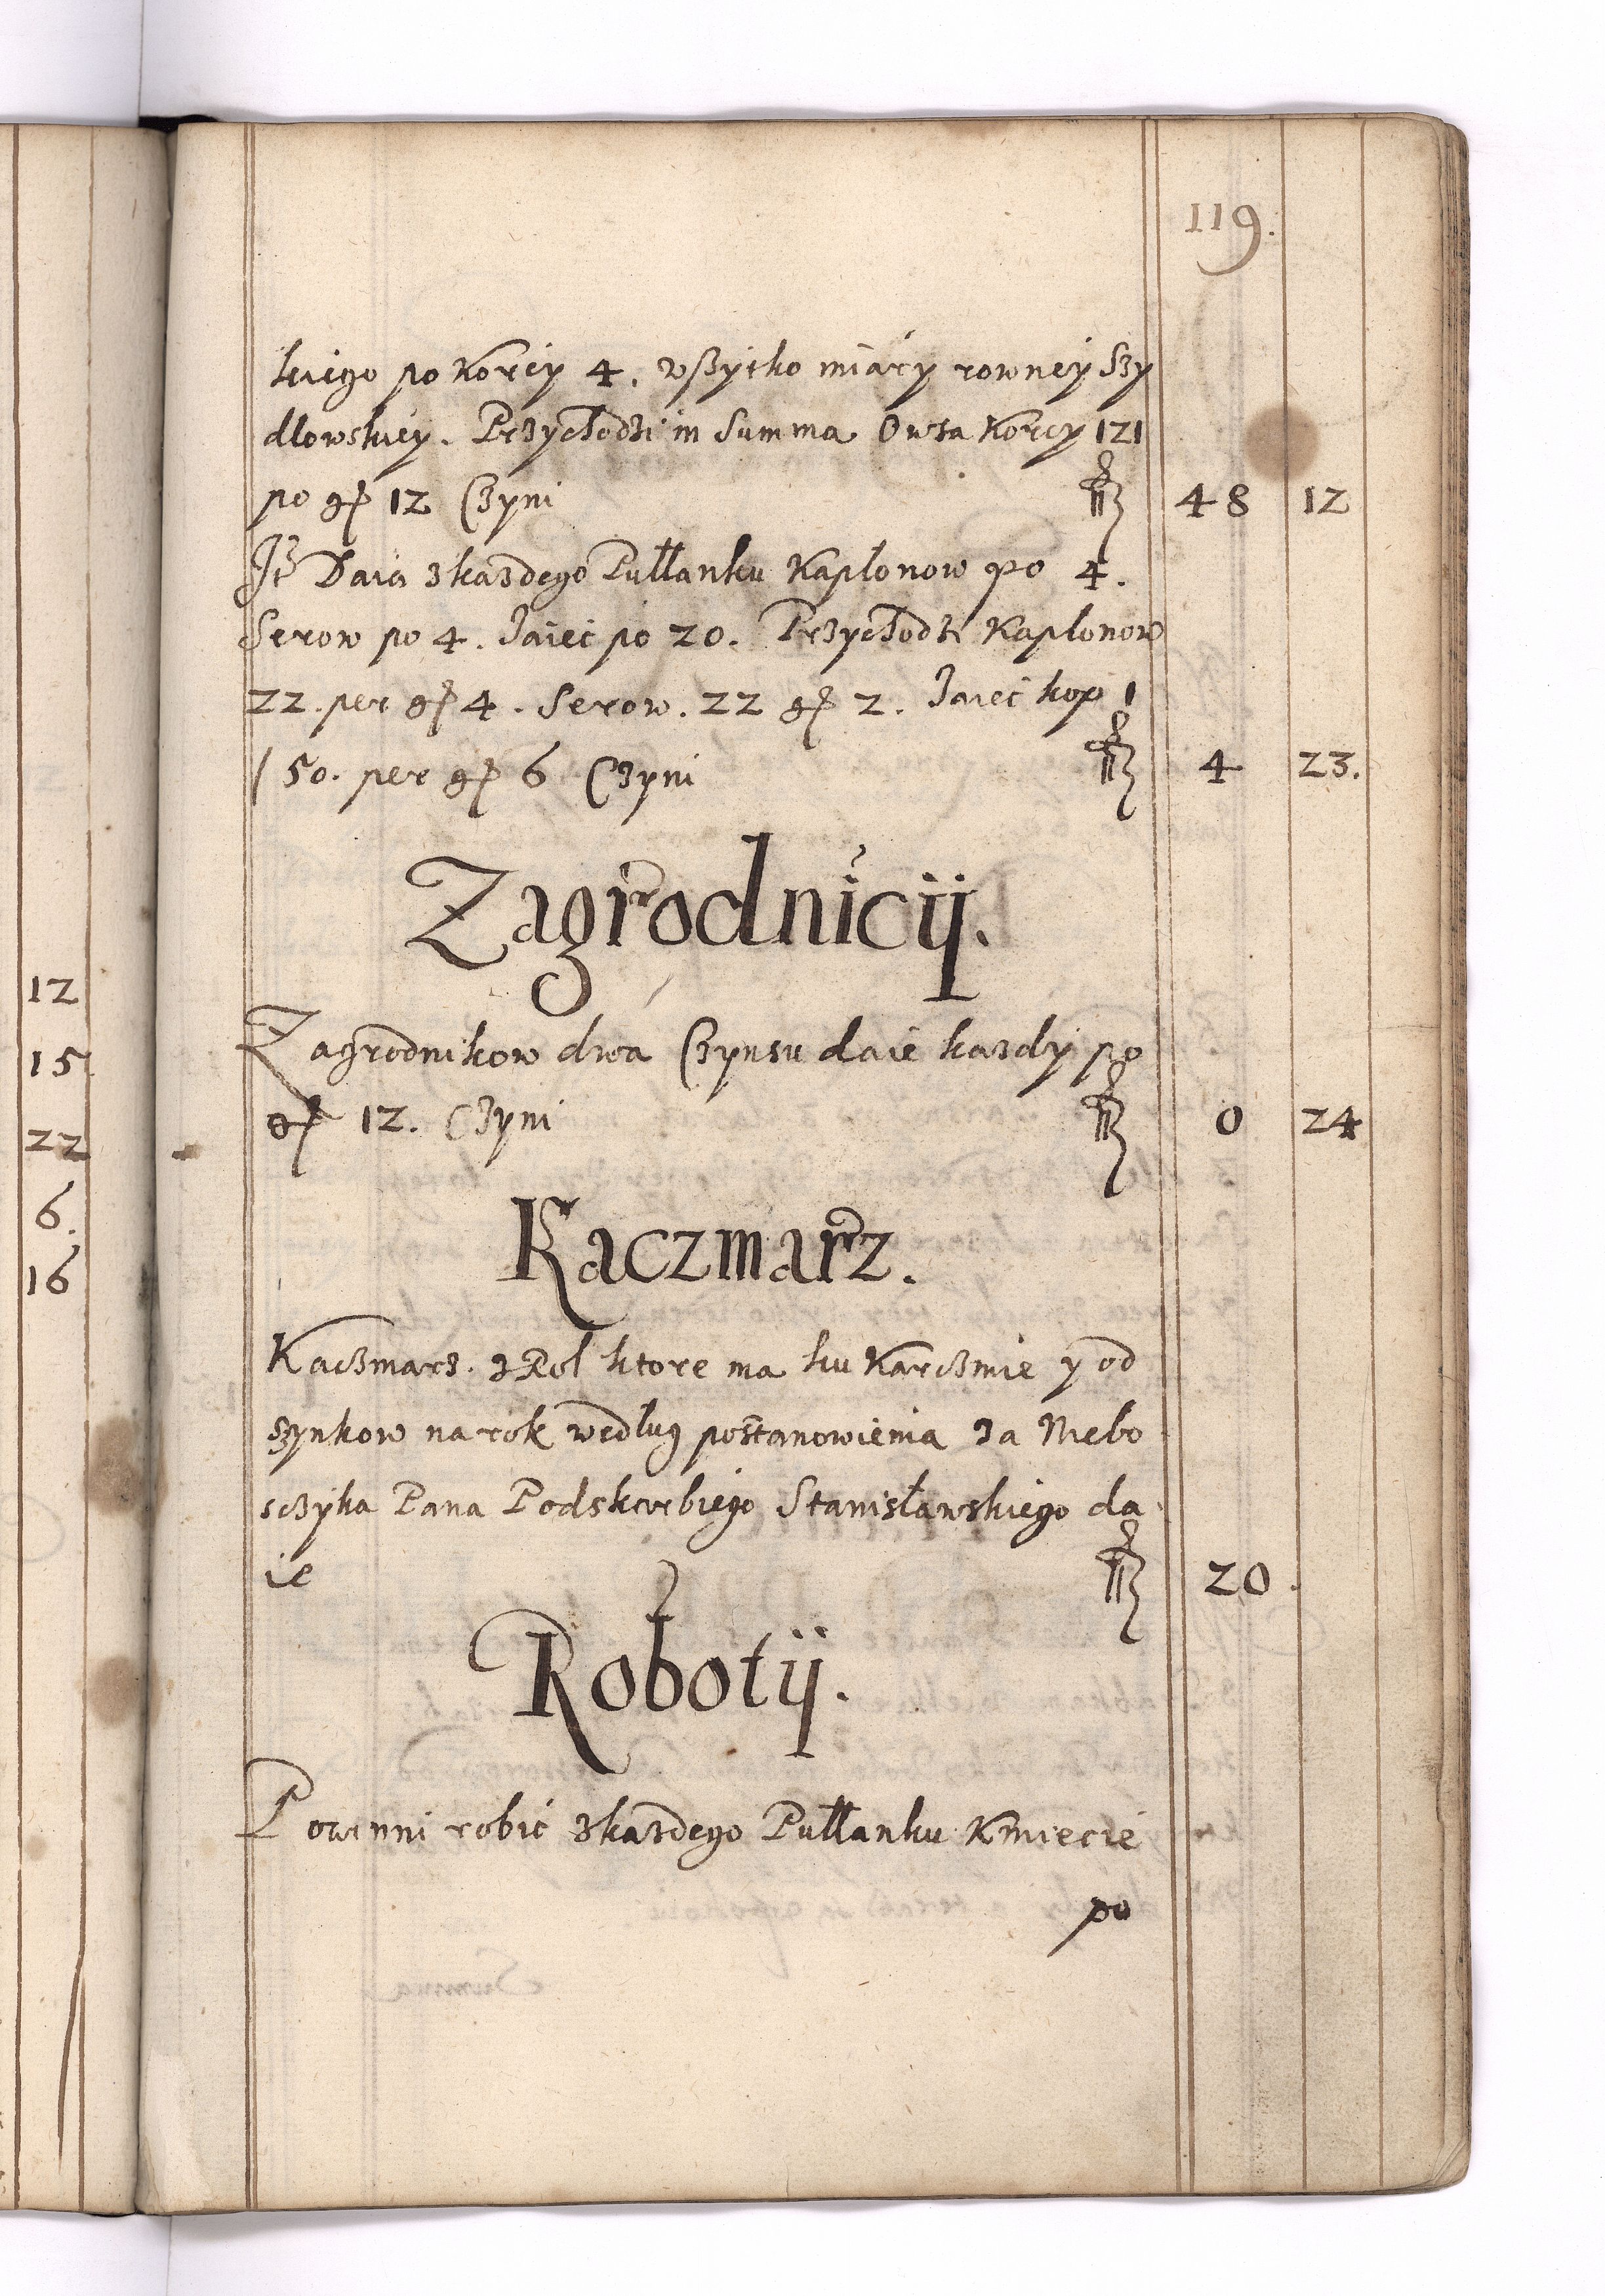 119.
kiego po Korcy 4. wßytko miary rowney Szy
dlowskiey. Przychodzi in Summa Owsa Korcy 121
po gr 12 Czyni 48 12
Daia zkazdego Pułłanku Kapłonow po 4.
Serow po 4. Jaiec po 20. Przychodzi Kapłonow
22. per gr 4. Serow. 22 gr 2. Jaiec kop 1
/ 50. per gr 6 Czyni 4 23.
Zagrodnicij.
Zagrodnikow dwa Czynsu daie kazdy po
gr 12. Czyni 0 24
Kaczmarz.
Kaczmarz. z Rol ktore ma ku Karczmie y od
szynkow na rok według postanowienia za Niebo
sczyka Pana Podskorbiego Stanisławskiego da
ie 20.
Robotij.
Powinni robić zkazdego Pułłanku Kmiecie
po
12
15
22
6.
16